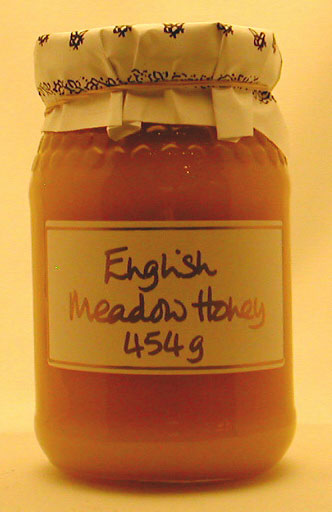 English
Meadow Honey
454g